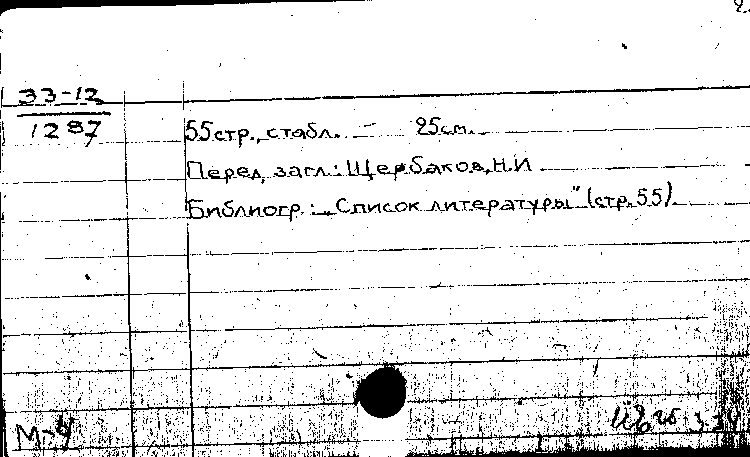 33-12
1287
55стр., стабл. - 25см.
Перед загл.: Щербаков, Н.И
Библиогр.: „Список литературы" (стр. 55)
М-4